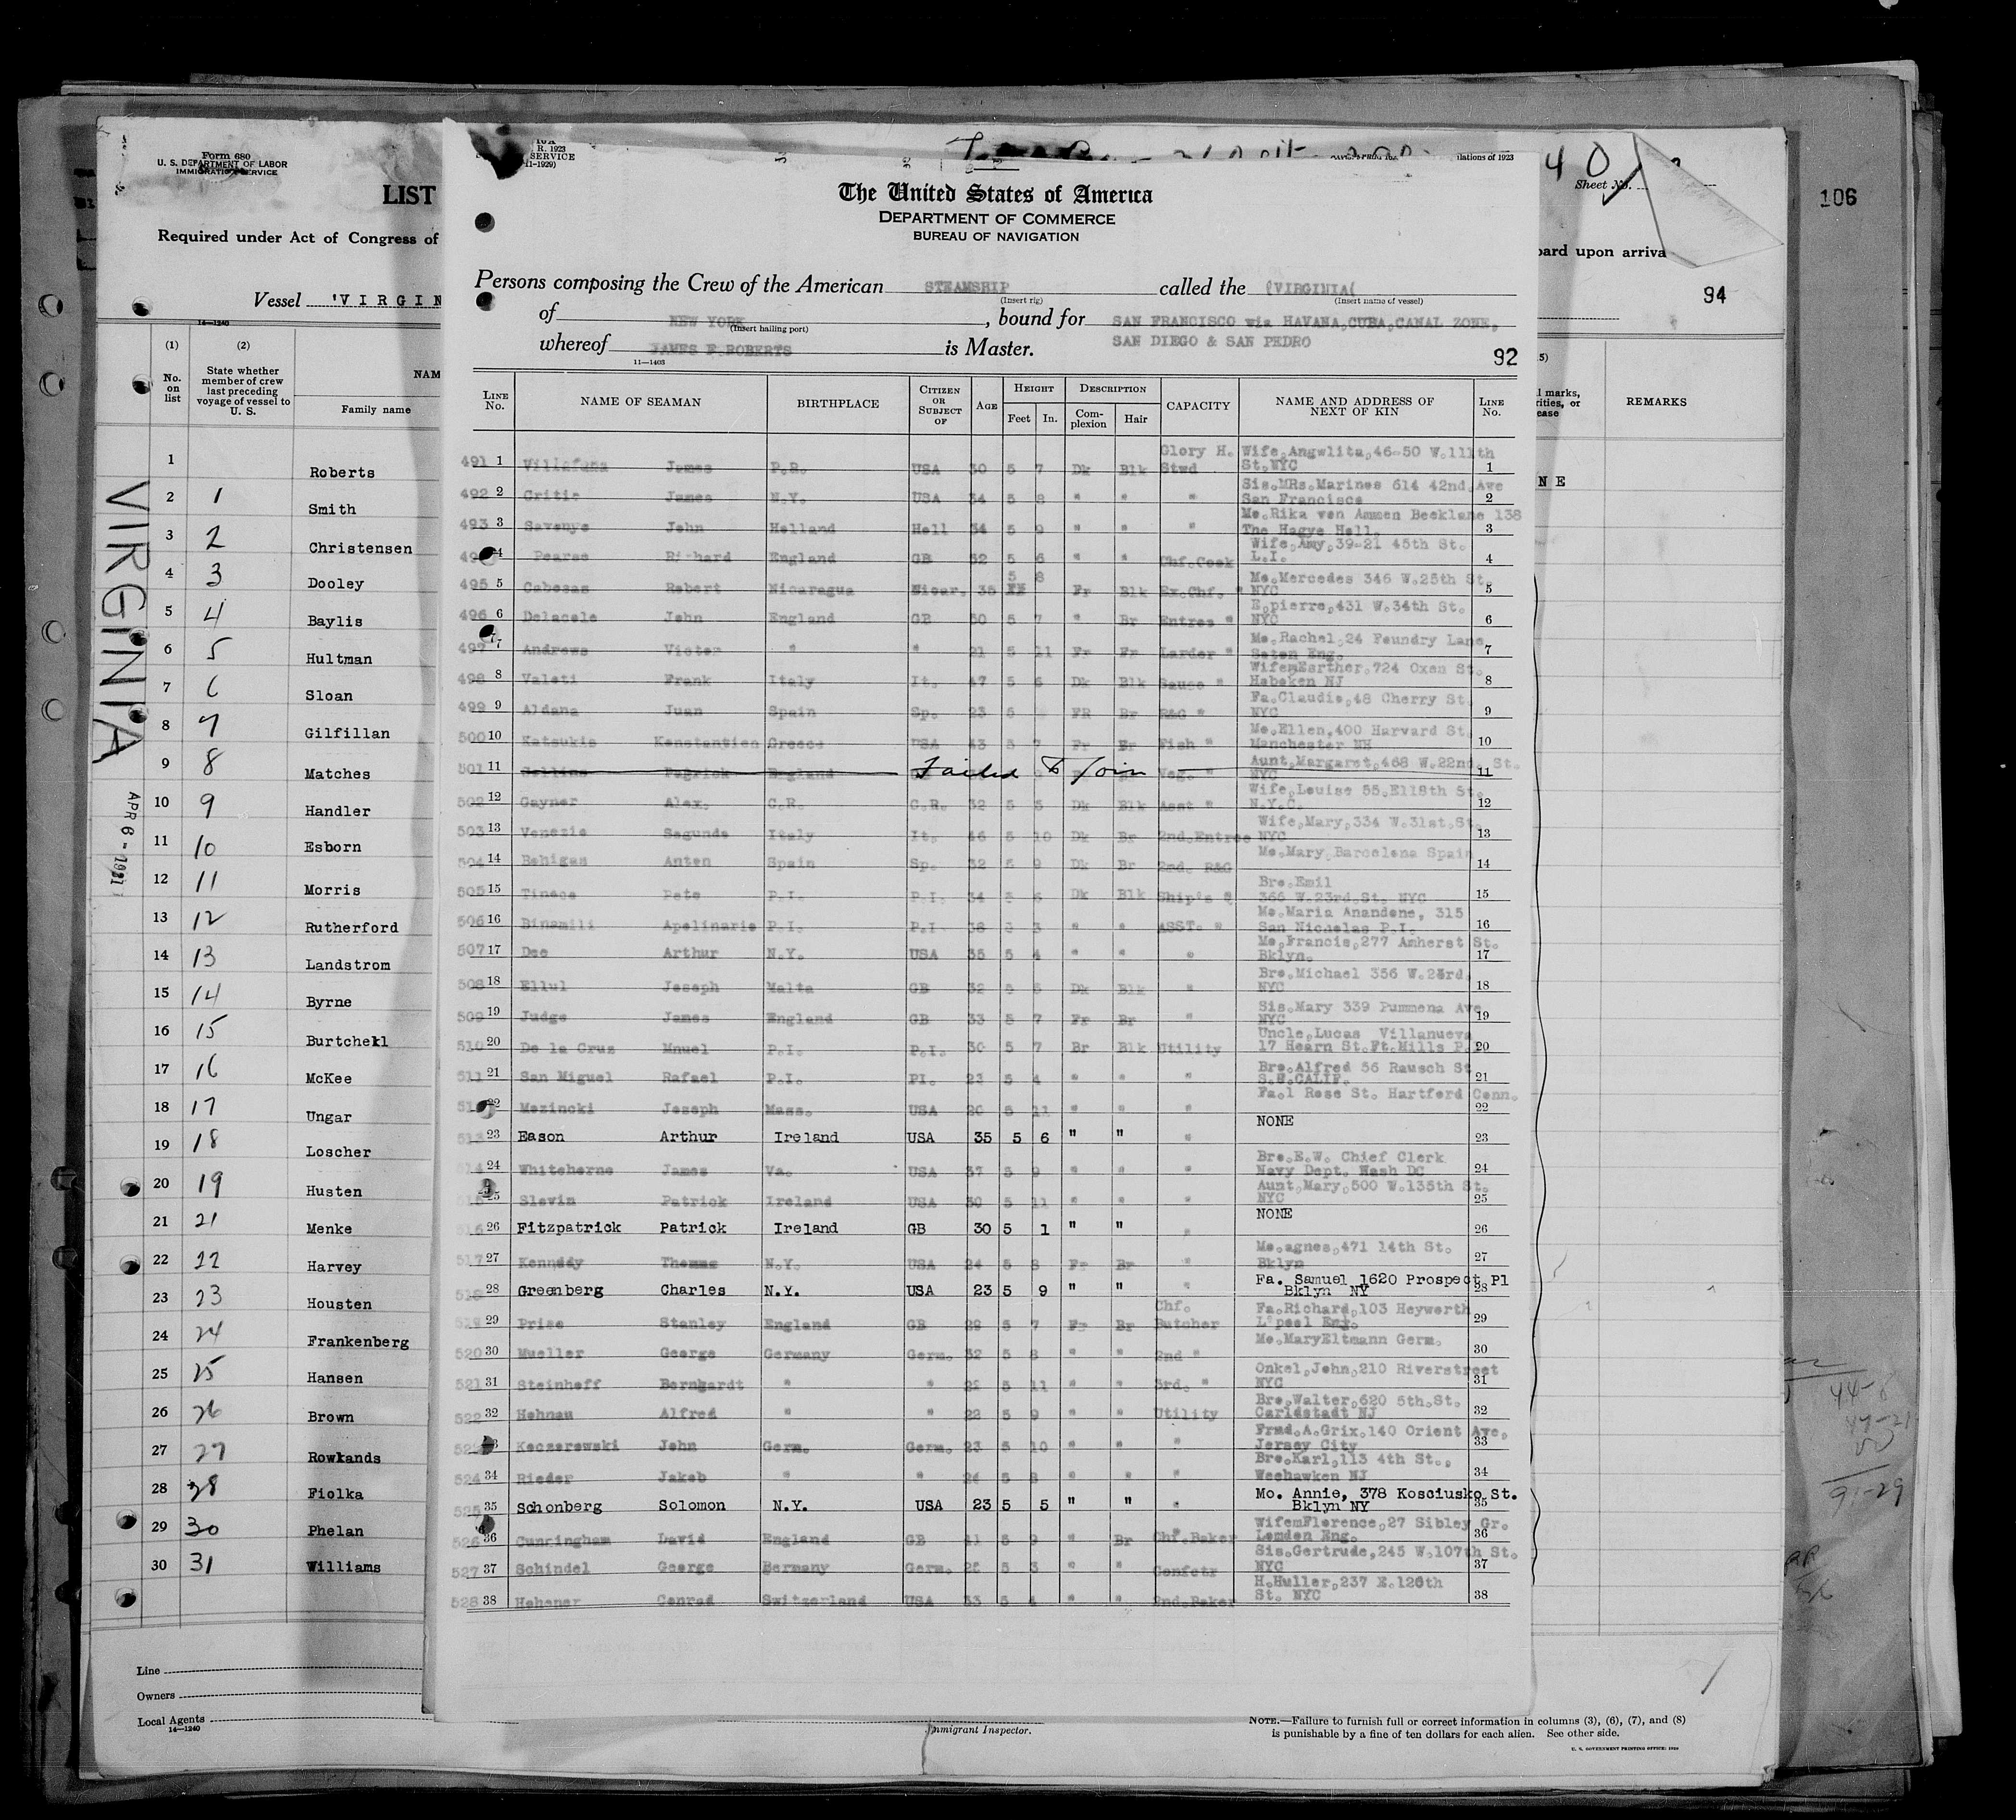 Form 680
U. S. DEPARTMENT OF LABOR
IMMIGRATION SERVICE
LIST
Required under Act of Congress of
Vessel 'VIRGIN
14—1240
(1) (2)
No. on list
State whether member of crew last preceding voyage of vessel to U. S.
NAM
Family name
1 Roberts
2 1 Smith
3 2 Christensen
4 3 Dooley
5 4 Baylis
6 5 Hultman
7 6 Sloan
8 7 Gilfillan
9 8 Matches
10 9 Handler
11 10 Esborn
12 11 Morris
13 12 Rutherford
14 13 Landstrom
15 14 Byrne
16 15 Burtchell
17 16 McKee
18 17 Ungar
19 18 Loscher
20 19 Husten
21 21 Menke
22 22 Harvey
23 23 Housten
24 24 Frankenberg
25 25 Hansen
26 26 Brown
27 27 Rowlands
28 28 Fiolka
29 30 Phelan
30 31 Williams
VIRGINIA
APR 6 - 1931
Line
Owners
Local Agents
14—1240
R. 1923
SERVICE
11-1929)
lations of 1923
The United States of America
DEPARTMENT OF COMMERCE
BUREAU OF NAVIGATION
Persons composing the Crew of the American STEAMSHIP called the (VIRGINIA(
(Insert rig) (Insert name of vessel)
of NEW YORK, bound for SAN FRANCISCO via HAVANA,CUBA,CANAL ZONE,
(Insert hailing port)
whereof JAMES F ROBERTS is Master. SAN DIEGO & SAN PEDRO
11—1403
92
LINE No. NAME OF SEAMAN BIRTHPLACE CITIZEN OR SUBJECT OF AGE HEIGHT Feet In. DESCRIPTION Complexion Hair CAPACITY NAME AND ADDRESS OF NEXT OF KIN LINE No.
491 1 Villafana James P.R. USA 30 5 7 Dk Blk Glory H. Stwd Wife,Angwlita,46-50 W.111th St,NYC 1
492 2 Critic James N.Y. USA 34 5 8 " " " Sis.MRs.Marines 614 42nd.Ave San Francisco 2
493 3 Savenye John Holland Holl 34 5 9 " " " Mo.Rika von Ammen Becklane 138 The Hagye Holl. 3
4 Pearse Richard England GB 32 5 6 " " Chf.Cook Wife,Amy,39-21 45th St. L.I. 4
495 5 Cabesas Robert Nicaragua Nicar. 35 5 8 Fr Blk Ex.Chf. " Mo.Mercedes 346 W.25th St. NYC 5
496 6 Delacole John England GB 30 5 7 " Br Entree " E.pierre,431 W.34th St. NYC 6
497 7 Andrews Victor " " 21 5 11 Fr Fr Larder " Mo.Rachel,24 Foundry Lane Seton Eng. 7
498 8 Valeti Frank Italy It. 47 5 6 Dk Blk Sauce " WifemEsrther,724 Oxen St. Hoboken NJ 8
499 9 Aldana Juan Spain Sp. 23 5 FR Br R&G " Fa.Claudio,48 Cherry St. NYC 9
500 10 Katsukis Konstantien Greece USA 43 5 7 Fr Br Fish " Mo.Ellen,400 Harvard St. Manchester NH 10
501 11 Collins Patrick England Failed to join Veg. " Aunt,Margaret,468 W.22nd. St. NYC 11
502 12 Gayner Alex. C.R. C.R. 32 5 5 Dk Blk Asst " Wife,Louise 55,E118th St. N.Y.C. 12
503 13 Venezia Segunde Italy It. 46 5 10 Dk Br 2nd.Entree Wife,Mary,334 W.31st.St. NYC 13
504 14 Behigas Anten Spain Sp. 32 5 9 Dk Br 2nd. R&G Mo.Mary Barcelona Spain 14
505 15 Tineco Pete P.I. P.I. 34 5 6 Dk Blk Ship's Bro.Emil 366 W.23rd.St. NYC 15
506 16 Binamili Apolinario P.I. P.I 38 3 " " ASST. " Mo.Maria Anandene, 315 San Nicholas P.I. 16
507 17 Dee Arthur N.Y. USA 35 5 4 " " " Mo,Francis,277 Amherst St. Bklyn. 17
508 18 Ellul Joseph Malta GB 32 5 5 Dk Blk " Bro.Michael 356 W.23rd. NYC 18
509 19 Judge James England GB 33 5 7 Fr Br " Sis.Mary 339 Pummena Ave NYC 19
510 20 De la Cruz Mnuel P.I. P.I. 30 5 7 Br Blk Utility Uncle,Lucas Villanueva 17 Hearn St.Ft.Mills P. 20
511 21 San Miguel Rafael P.I. PI. 23 5 4 " " " Bro.Alfred 56 Rausch St S.F.CALIF. 21
22 Mozincki Joseph Mass. USA 20 5 11 " " " Fa.1 Rose St. Hartford Conn. 22
23 Eason Arthur Ireland USA 35 5 6 " " " NONE 23
24 Whitehorne James Va. USA 37 5 9 " " " Bro.E.W. Chief Clerk Navy Dept. Wash DC 24
25 Slevin Patrick Ireland USA 30 5 11 " " " Aunt,Mary,500 W.135th St. NYC 25
26 Fitzpatrick Patrick Ireland GB 30 5 1 " " " NONE 26
517 27 Kennddy Thomas N.Y. USA 24 5 8 Fr Br Mo.agnes,471 14th St. Bklyn 27
28 Greenberg Charles N.Y. USA 23 5 9 " " " Fa. Samuel 1620 Prospect Pl Bklyn NY 28
519 29 Price Stanley England GB 29 5 7 Fr Br Chf. Butcher Fa.Richard,103 Heyworth L'pool Eng. 29
520 30 Mueller George Germany Germ. 32 5 8 " " 2nd " Mo.MaryEltmann Germ. 30
521 31 Steinhoff Bernhardt " " 22 5 11 " " 3rd. " Onkel,John,210 Riverstreet NYC 31
522 32 Hohnau Alfred " " 22 5 9 " " Utility Bro.Walter,620 5th.St. Carldstadt NJ 32
Koczerowski John Germ. Germ. 23 5 10 " " " Frnd.A.Grix.140 Orient Ave, Jersey City 33
524 34 Rieder Jakob " " 24 5 8 " " " Bro.Karl,113 4th St., Weehawken NJ 34
525 35 Schonberg Solomon N.Y. USA 23 5 5 " " " Mo. Annie, 378 Kosciusko St. Bklyn NY 35
526 36 Cunningham David England GB 41 5 9 " Br Chf.Baker WifemFlorence,27 Sibley Gr. London Eng. 36
527 37 Schindel George Germany Germ. 25 5 3 " " Confetr Sis.Gertrude,245 W.107th St. NYC 37
528 38 Hohener Conrad Switzerland USA 33 5 4 " " 2nd.Baker H.Huller,237 E.126th St. NYC 38
40
Sheet No.
106
oard upon arriva
94
l marks,
rities, or
ease
REMARKS
N E
44-8
91-29
Immigrant Inspector.
NOTE.—Failure to furnish full or correct information in columns (3), (6), (7), and (8)
is punishable by a fine of ten dollars for each alien. See other side.
U. S. GOVERNMENT PRINTING OFFICE: 1929